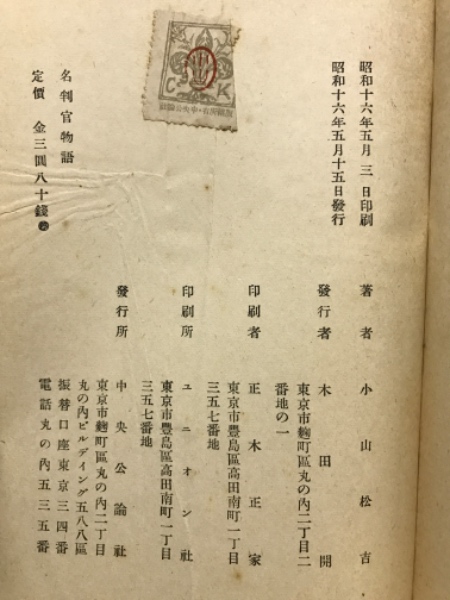 昭和十六年五月三日印刷
昭和十六年五月十五日發行
名判官物語
定價 金三圓八十錢
C K
著者 小山松吉
發行者 木田開
東京市麴町區丸の內二丁目二
番地の一
印刷者 正木正家
東京市豐島區高田南町一丁目
三五七番地
印刷所 ユニオン社
東京市豐島區高田南町一丁目
三五七番地
發行所 中央公論社
東京市麴町區丸の內二丁目
丸の內ビルディング五八八區
振替口座東京三四番
電話丸の內五三五番